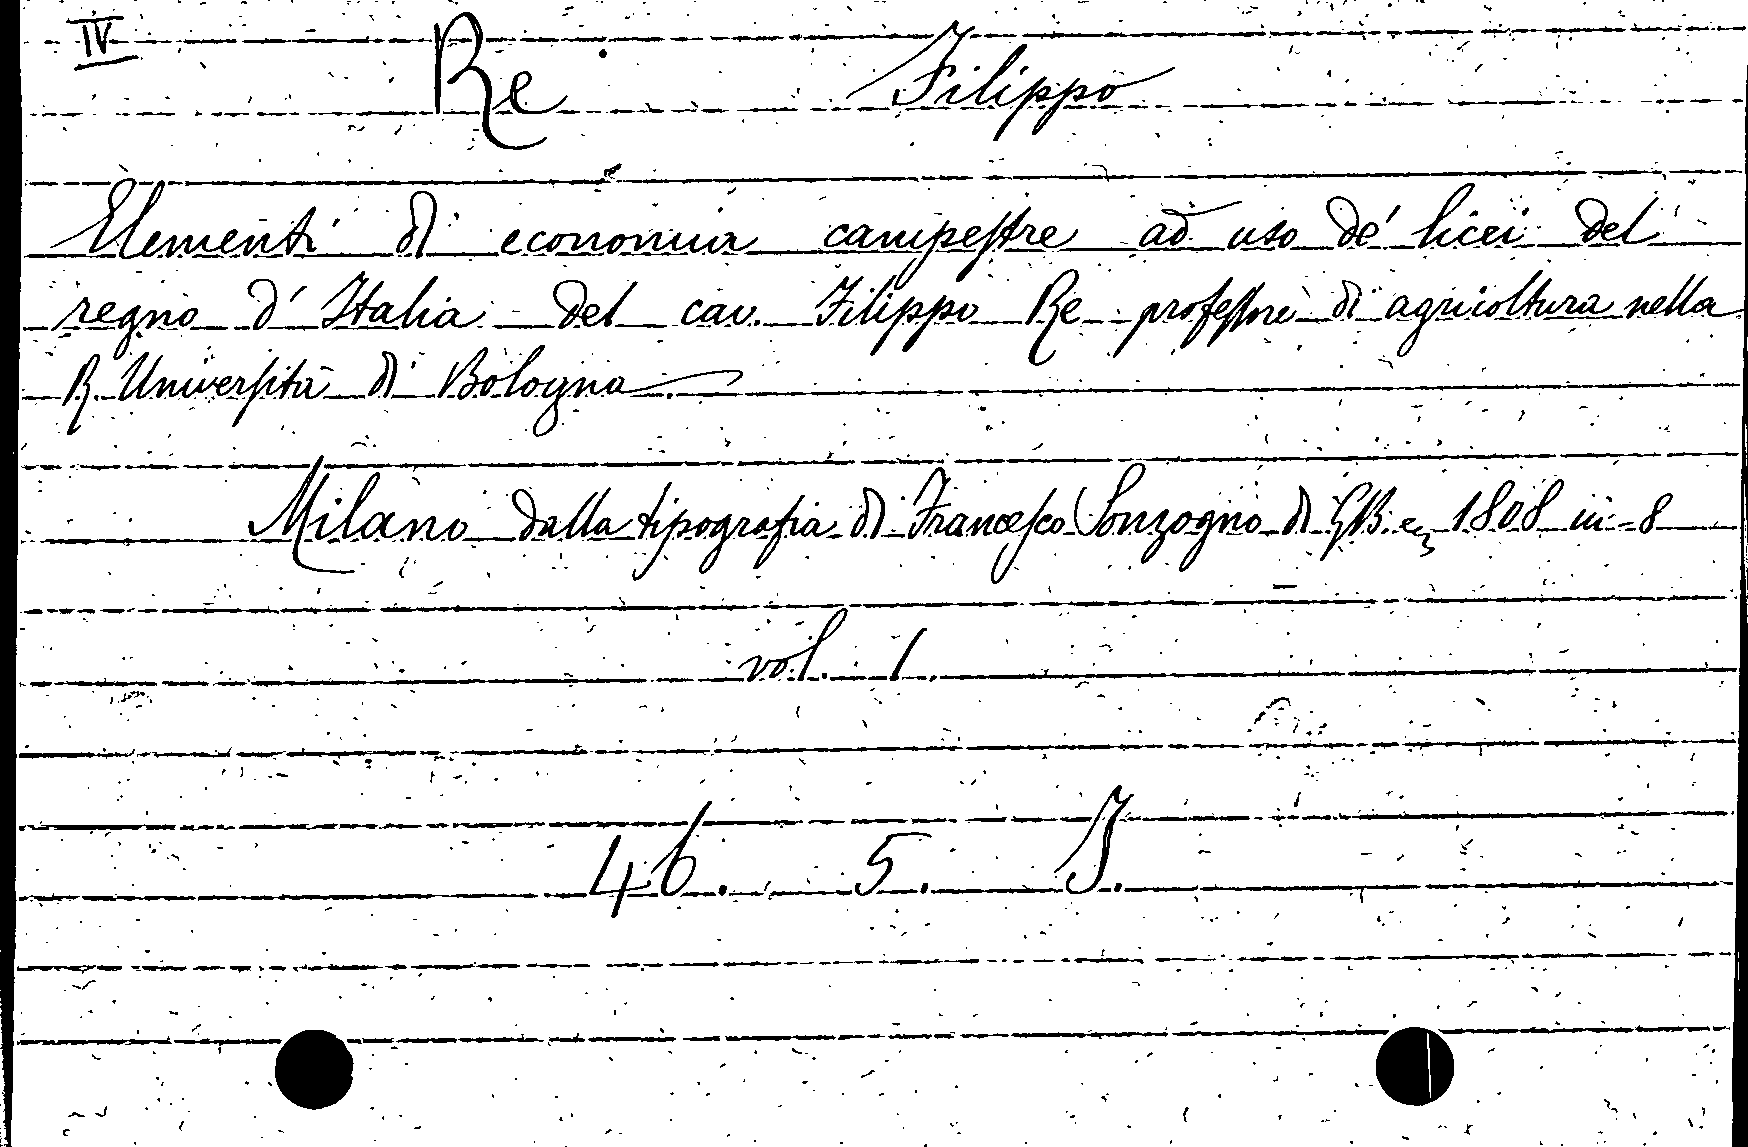 IV
Re Filippo
Elementi di economia campestre ad uso de' licei del
regno d'Italia del cav. Filippo Re professore di agricoltura nella
R. Università di Bologna
Milano dalla tipografia di Francesco Sonzogno di G.B. 1808 in-8
vol. 1.
46. 5. J.